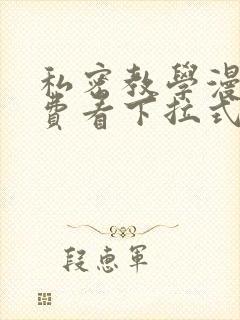 私密教學漫
費看下拉式
段惠軍